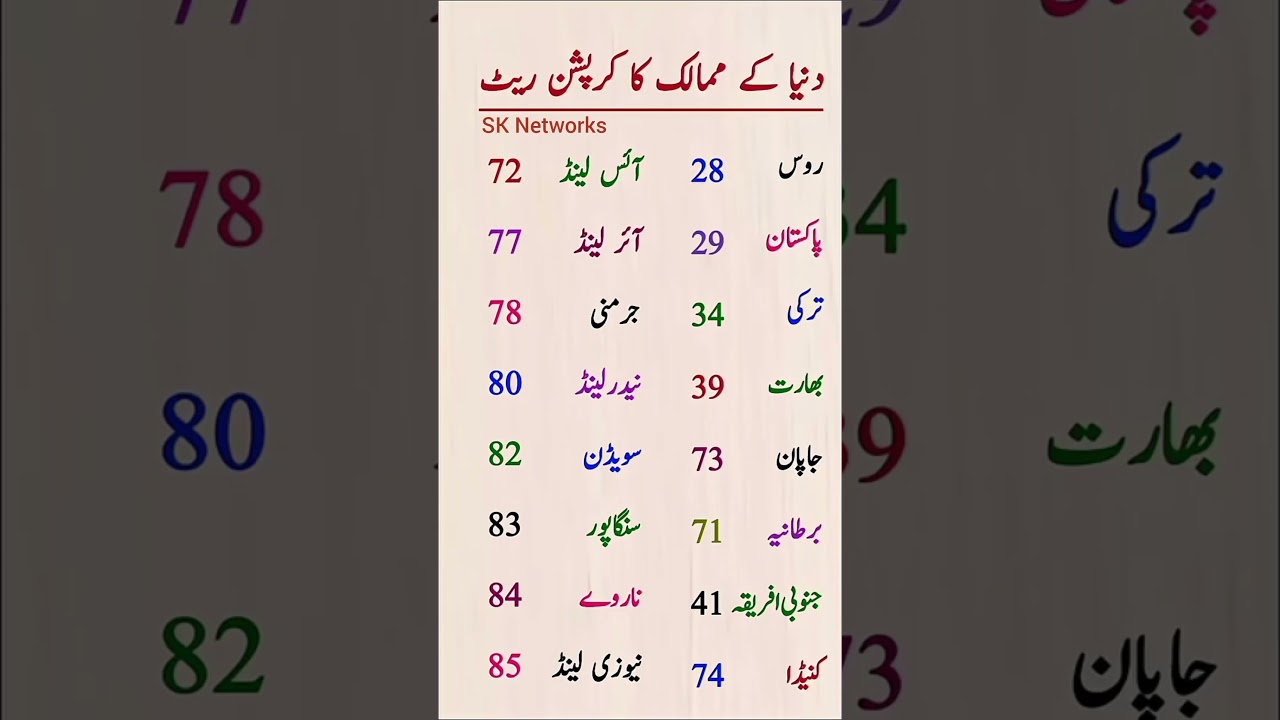 دنیا کے ممالک کا کرپشن ریٹ
SK Networks
روس 28 آئس لینڈ 72
پاکستان 29 آئر لینڈ 77
ترکی 34 جرمنی 78
بھارت 39 نیدرلینڈ 80
جاپان 73 سویڈن 82
برطانیہ 71 سنگاپور 83
جنوبی افریقہ 41 ناروے 84
کنیڈا 74 نیوزی لینڈ 85
ترکی 34 78
بھارت 39 80
جاپان 73 82